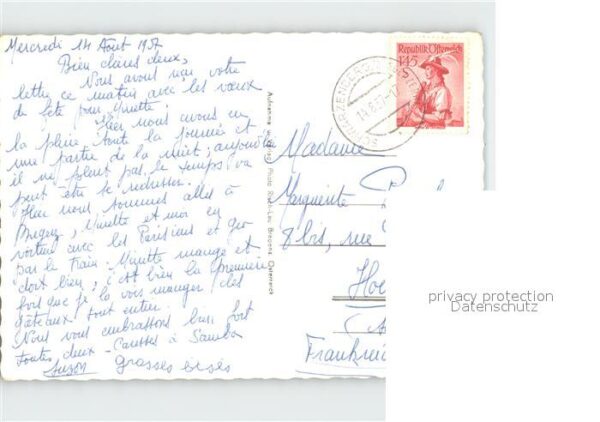 Mercredi 14 Août 1957
Bien chères deux,
Nous avons reçu votre
lettre ce matin avec les vœux
de fête pour Minette.
Hier nous avons eu
la pluie, toute la journée et
une partie de la nuit; aujourd'hui
il ne pleut pas, le temps va
peut être se redresser.
Hier nous sommes allés à
Bregenz, Minette et moi en
voiture avec les Parisiens et
par le train. Minette mange et
dort bien, c'est bien la première
fois que je la vois manger des
gâteaux tout entier.
Nous vous embrassons bien fort
toutes deux - Caresses à Samba
Suzon grosses bises
Aufnahme u. Verlag: Photo Bregenz, Österreich
Republik Österreich
1'45
S
SCHWARZENBERG
14.8.57
Madame
Marguerite
8 bis, rue
Frankreich
privacy protection
Datenschutz